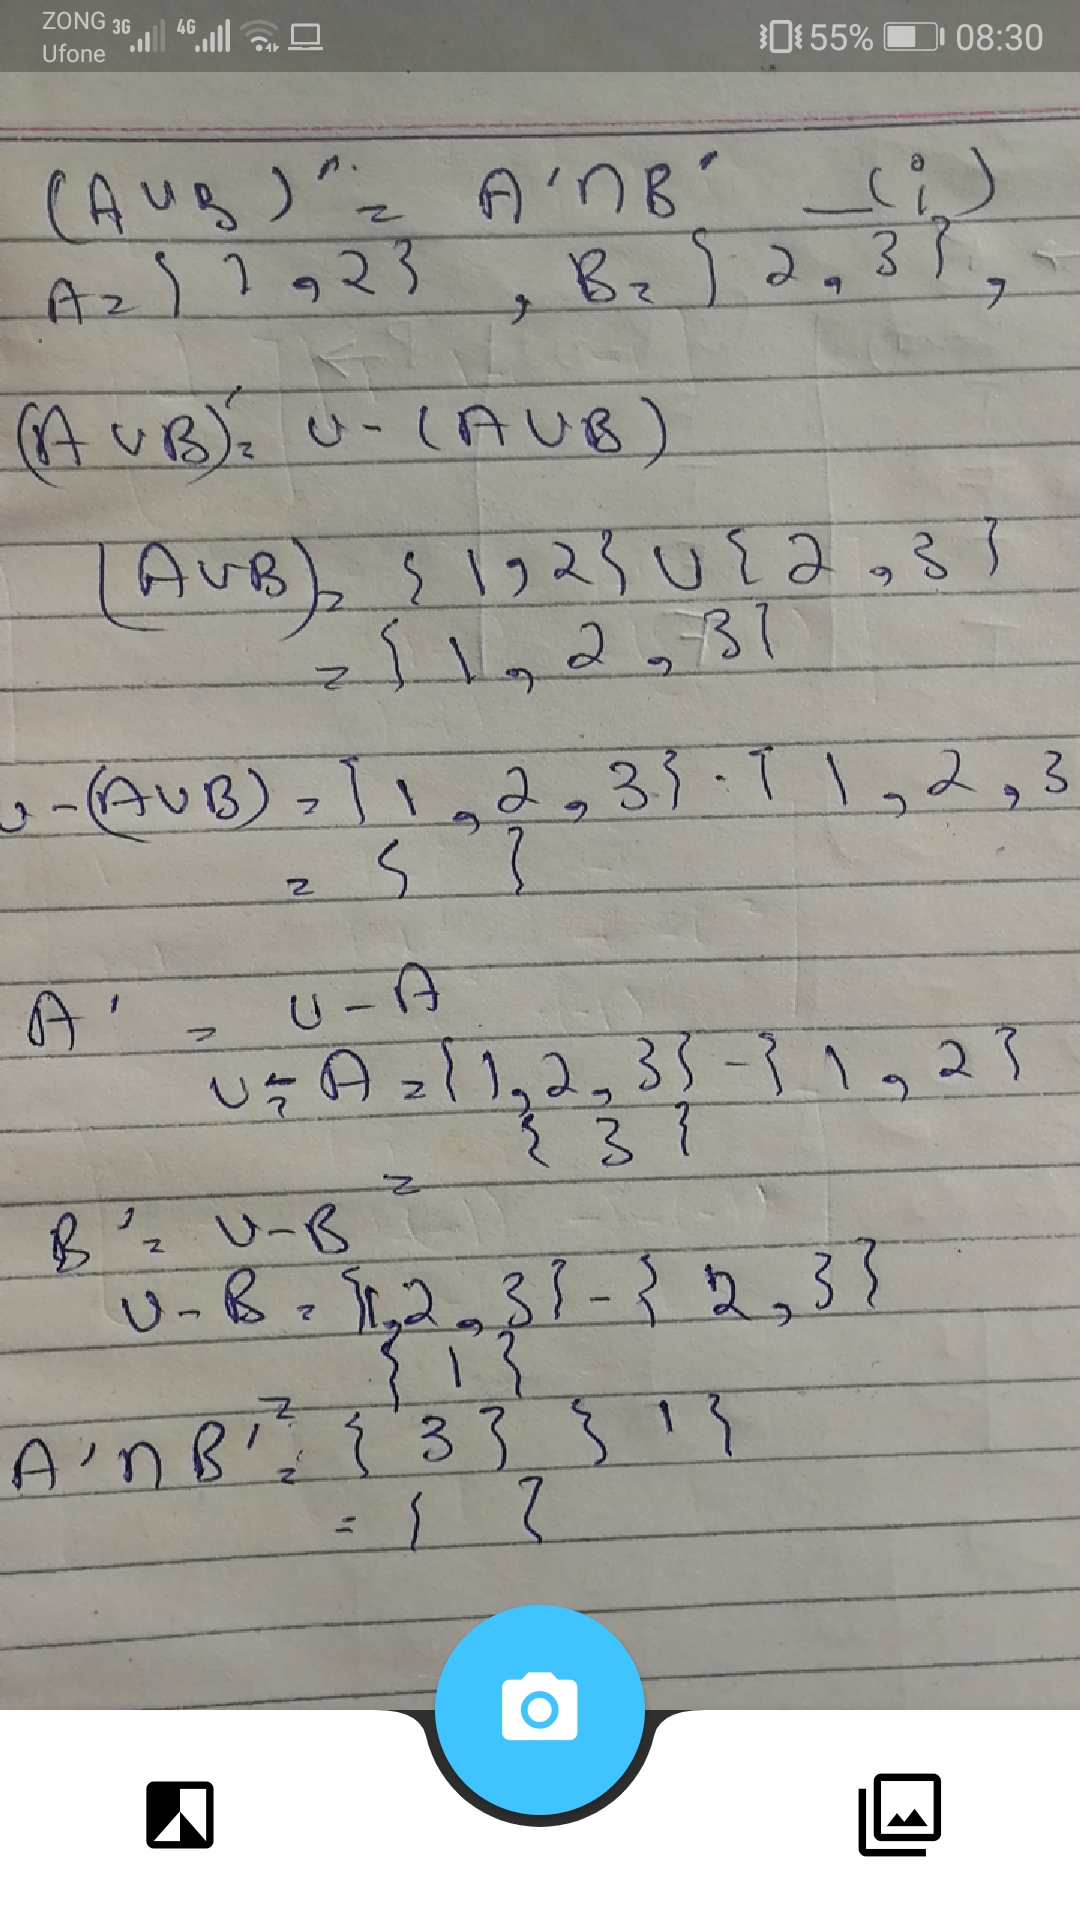 ZONG 3G 4G 55% 08:30
Ufone
(A∪B)' = A'∩B' _(i)
A = {1,2} , B = {2,3},
(A∪B)' = U-(A∪B)
(A∪B) = {1,2}∪{2,3}
= {1,2,3}
U-(A∪B) = {1,2,3}-{1,2,3
= { }
A' = U-A
U-A = {1,2,3}-{1,2}
= {3}
B' = U-B
U-B = {1,2,3}-{2,3}
= {1}
A'∩B' = {3} {1}
= { }